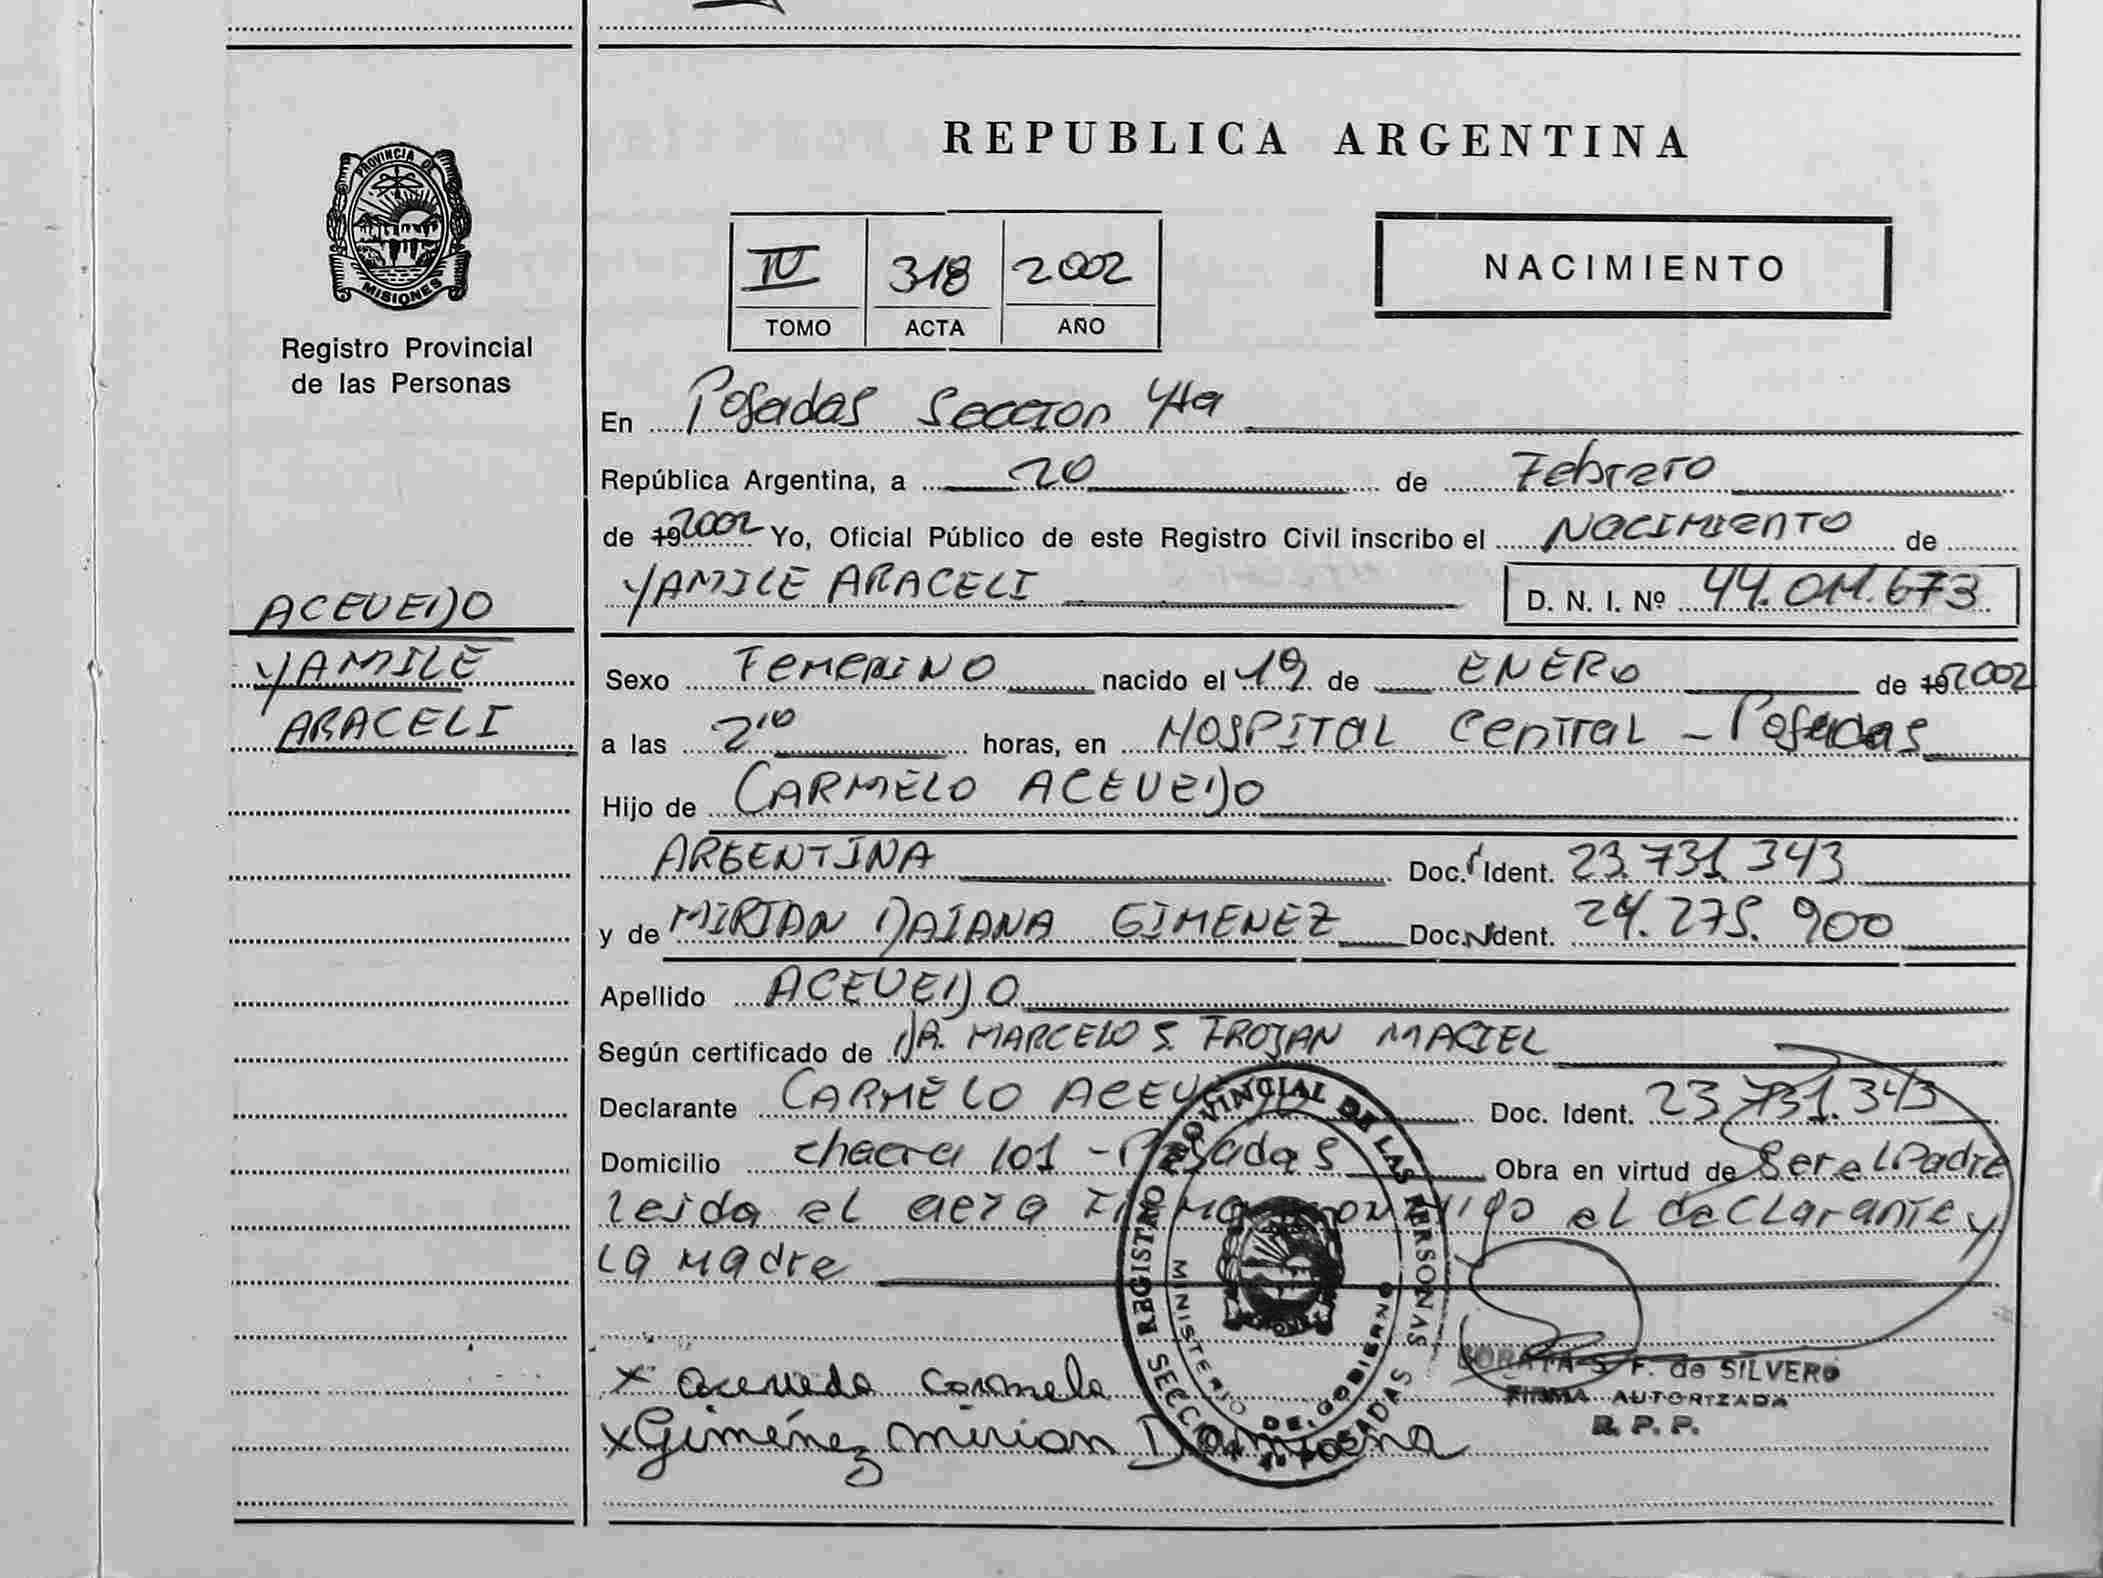 REPUBLICA ARGENTINA
PROVINCIA DE
MISIONES
Registro Provincial
de las Personas
IV 318 2002
TOMO ACTA AÑO
NACIMIENTO
En Posadas Seccion 4ta
República Argentina, a 20 de Febrero
de 19 2002 Yo, Oficial Público de este Registro Civil inscribo el NACIMIENTO de
YAMILE ARACELI D. N. I. Nº 44.011.673
ACEVEDO
YAMILE
ARACELI
Sexo FEMENINO nacido el 19 de ENERO de 19 2002
a las 2¹⁰ horas, en HOSPITAL Central - Posadas
Hijo de CARMELO ACEVEDO
ARGENTINA Doc. Ident. 23.731.343
y de MIRIAN DAIANA GIMENEZ Doc. Ident. 24.275.900
Apellido ACEVEDO
Según certificado de DR. MARCELO S. TROJAN MACIEL
Declarante CARMELO ACEVEDO Doc. Ident. 23.731.343
Domicilio chacra 101 - Posadas Obra en virtud de Ser el Padre
Leida el acta Firman conmigo el declarante y
La Madre
REGISTRO PROVINCIAL DE LAS PERSONAS
MINISTERIO DE GOBIERNO
SECCION 4ª POSADAS
S. F. de SILVERO
FIRMA AUTORIZADA
R. P. P.
x Acevedo Carmelo
x Giménez Mirian